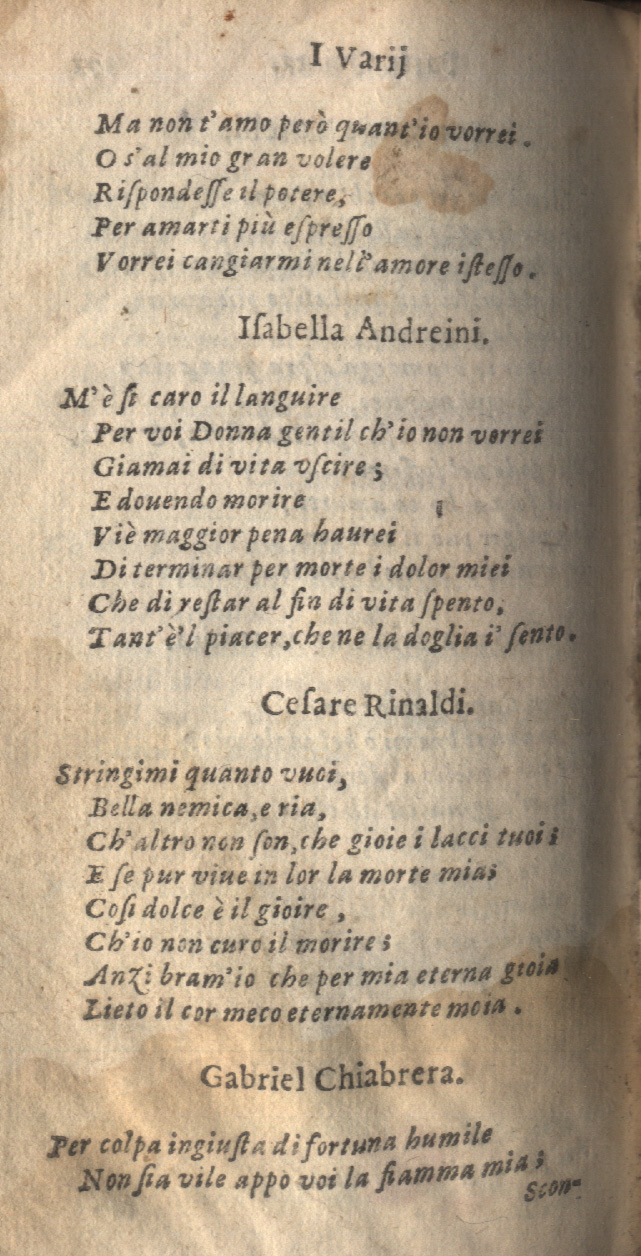 I Varij
Ma non t'amo però quant'io vorrei.
O s'al mio gran volere
Riſpondeſſe il potere,
Per amarti più eſpreſſo
Vorrei cangiarmi nell'amore iſteſſo.
Iſabella Andreini.
M'è ſi caro il languire
Per voi Donna gentil ch'io non verrei
Giamai di vita vſcire;
E douendo morire
Viè maggior pena haurei
Di terminar per morte i dolor miei
Che di reſtar al fin di vita ſpento,
Tant'è'l piacer, che ne la doglia i' ſento.
Ceſare Rinaldi.
Stringimi quanto vuoi,
Bella nemica, e ria,
Ch'altro non ſon, che gioie i lacci tuoi;
E ſe pur viue in lor la morte mia;
Coſi dolce è il gioire,
Ch'io non curo il morire;
Anzi bram'io che per mia eterna gioia
Lieto il cor meco eternamente moia.
Gabriel Chiabrera.
Per colpa ingiuſta di fortuna humile
Non ſia vile appo voi la fiamma mia;
Scon-